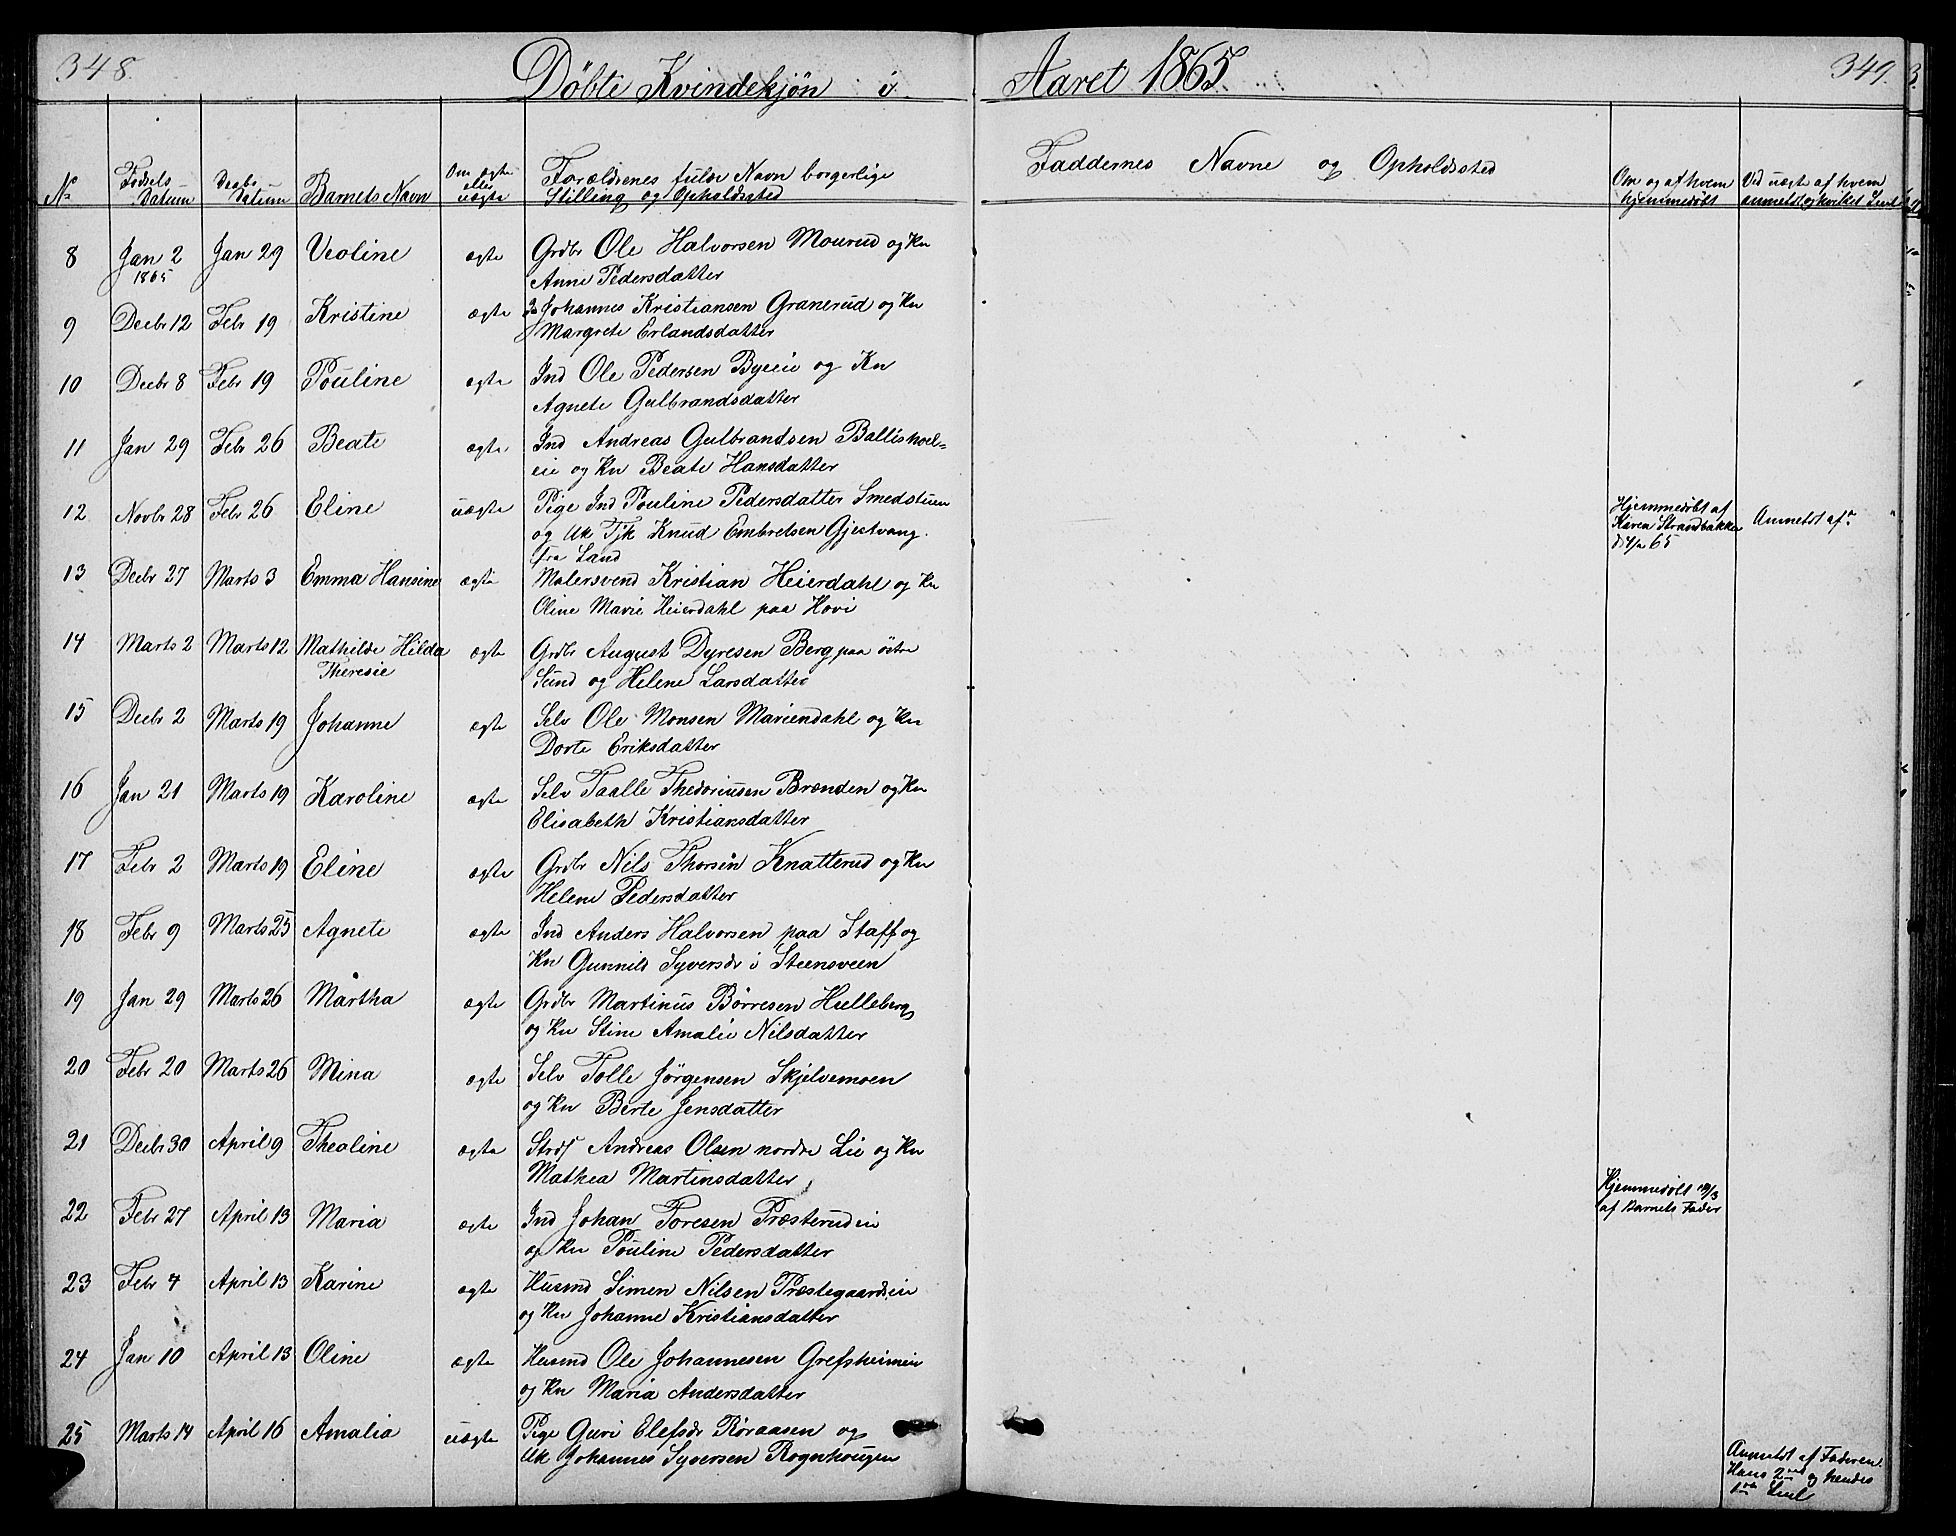 348.
Döbte Kvindekjön i
Aaret 1865.
349.
No
Fødsels Datum
Daabs Datum
Barnets Navn
Om ægte eller uægte
Forældrenes fulde Navn borgerlige Stilling og Opholdssted
Faddernes Navne og Opholdssted
Om og af hvem hjemmedöbt
Ved uægte af hvem anmeldt og hvilket
8 Jan 2 1865 Jan 29 Veoline ægte Grdbr Ole Halvorsen Mourud og Kn
Anne Pedersdatter
9 Decbr 12 Febr 19 Kristine ægte Johannes Kristiansen Granerud og Kn
Margrete Erlandsdatter
10 Decbr 8 Febr 19 Pouline ægte Ind Ole Pedersen Byeie og Kn
Agnete Gulbrandsdatter
11 Jan 29 Febr 26 Beate ægte Ind Andreas Gulbrandsen Ballishoel=
eie og Kn Beate Hansdatter
12 Novbr 28 Febr 26 Eline uægte Pige Ind Pouline Pedersdatter Smedstuen
og Uk Tjk Knud Embretsen Gjestvang
fra Land
Hjemmedöbt af
Karen Strandbakke
65
Anmeldt af
13 Decbr 27 Marts 3 Emma Hansine ægte Malersvend Kristian Heierdahl og Kn
Oline Marie Heierdahl paa Hovi
14 Marts 2 Marts 12 Mathilde Hilda Theresie ægte Grdbr August Dyresen Berg paa östre
Sund og Helene Larsdatter
15 Decbr 2 Marts 19 Johanne ægte Selv Ole Monsen Mariendahl og Kn
Dorte Eriksdatter
16 Jan 21 Marts 19 Karoline ægte Selv Taalle Thedoriusen Brænden og Kn
Elisabeth Kristiansdatter
17 Febr 2 Marts 19 Eline ægte Grdbr Nils Thorsen Knatterud og Kn
Helene Pedersdatter
18 Febr 9 Marts 25 Agnete ægte Ind Anders Halvorsen paa Staff og
Kn Gunnild Syversdr i Steensveen
19 Jan 29 Marts 26 Martha ægte Grdbr Martinus Börresen Hulleberg
og Kn Stine Amalie Nilsdatter
20 Febr 20 Marts 26 Mina ægte Selv Tolle Jörgensen Skjelvemoen
og Kn Berte Jensdatter
21 Decbr 30 April 9 Theoline ægte Strdf Andreas Olsen nordre Lie og Kn
Mathea Martinsdatter
22 Febr 27 April 13 Maria ægte Ind Johan Toresen Præsterudeie
og Kn Pouline Pedersdatter
Hjemmedöbt
af Barnets Fader
23 Febr 4 April 13 Karine ægte Husmd Simen Nilsen Præstegaardseie
og Kn Johanne Kristiansdatter
24 Jan 10 April 13 Oline ægte Husmd Ole Johannesen Grefsheimeie
og Kn Maria Andersdatter
25 Marts 14 April 16 Amalia uægte Pige Guri Elefsdr Röraasen og
Uk Johannes Syversen Rognhougen
Anmeldt af Faderen.
Hans 2 og hendes
1